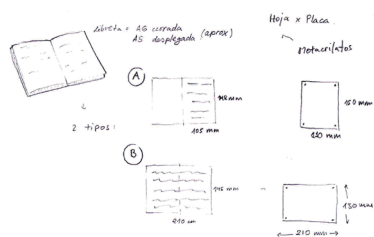 Libreta = A6 cerrada
A5 desplegada (aprox)
Hoja x Placa.
Metacrilatos
2 tipos:
A
148 mm
105 mm
150 mm
B
148 mm
210 cm
130 mm
210 mm